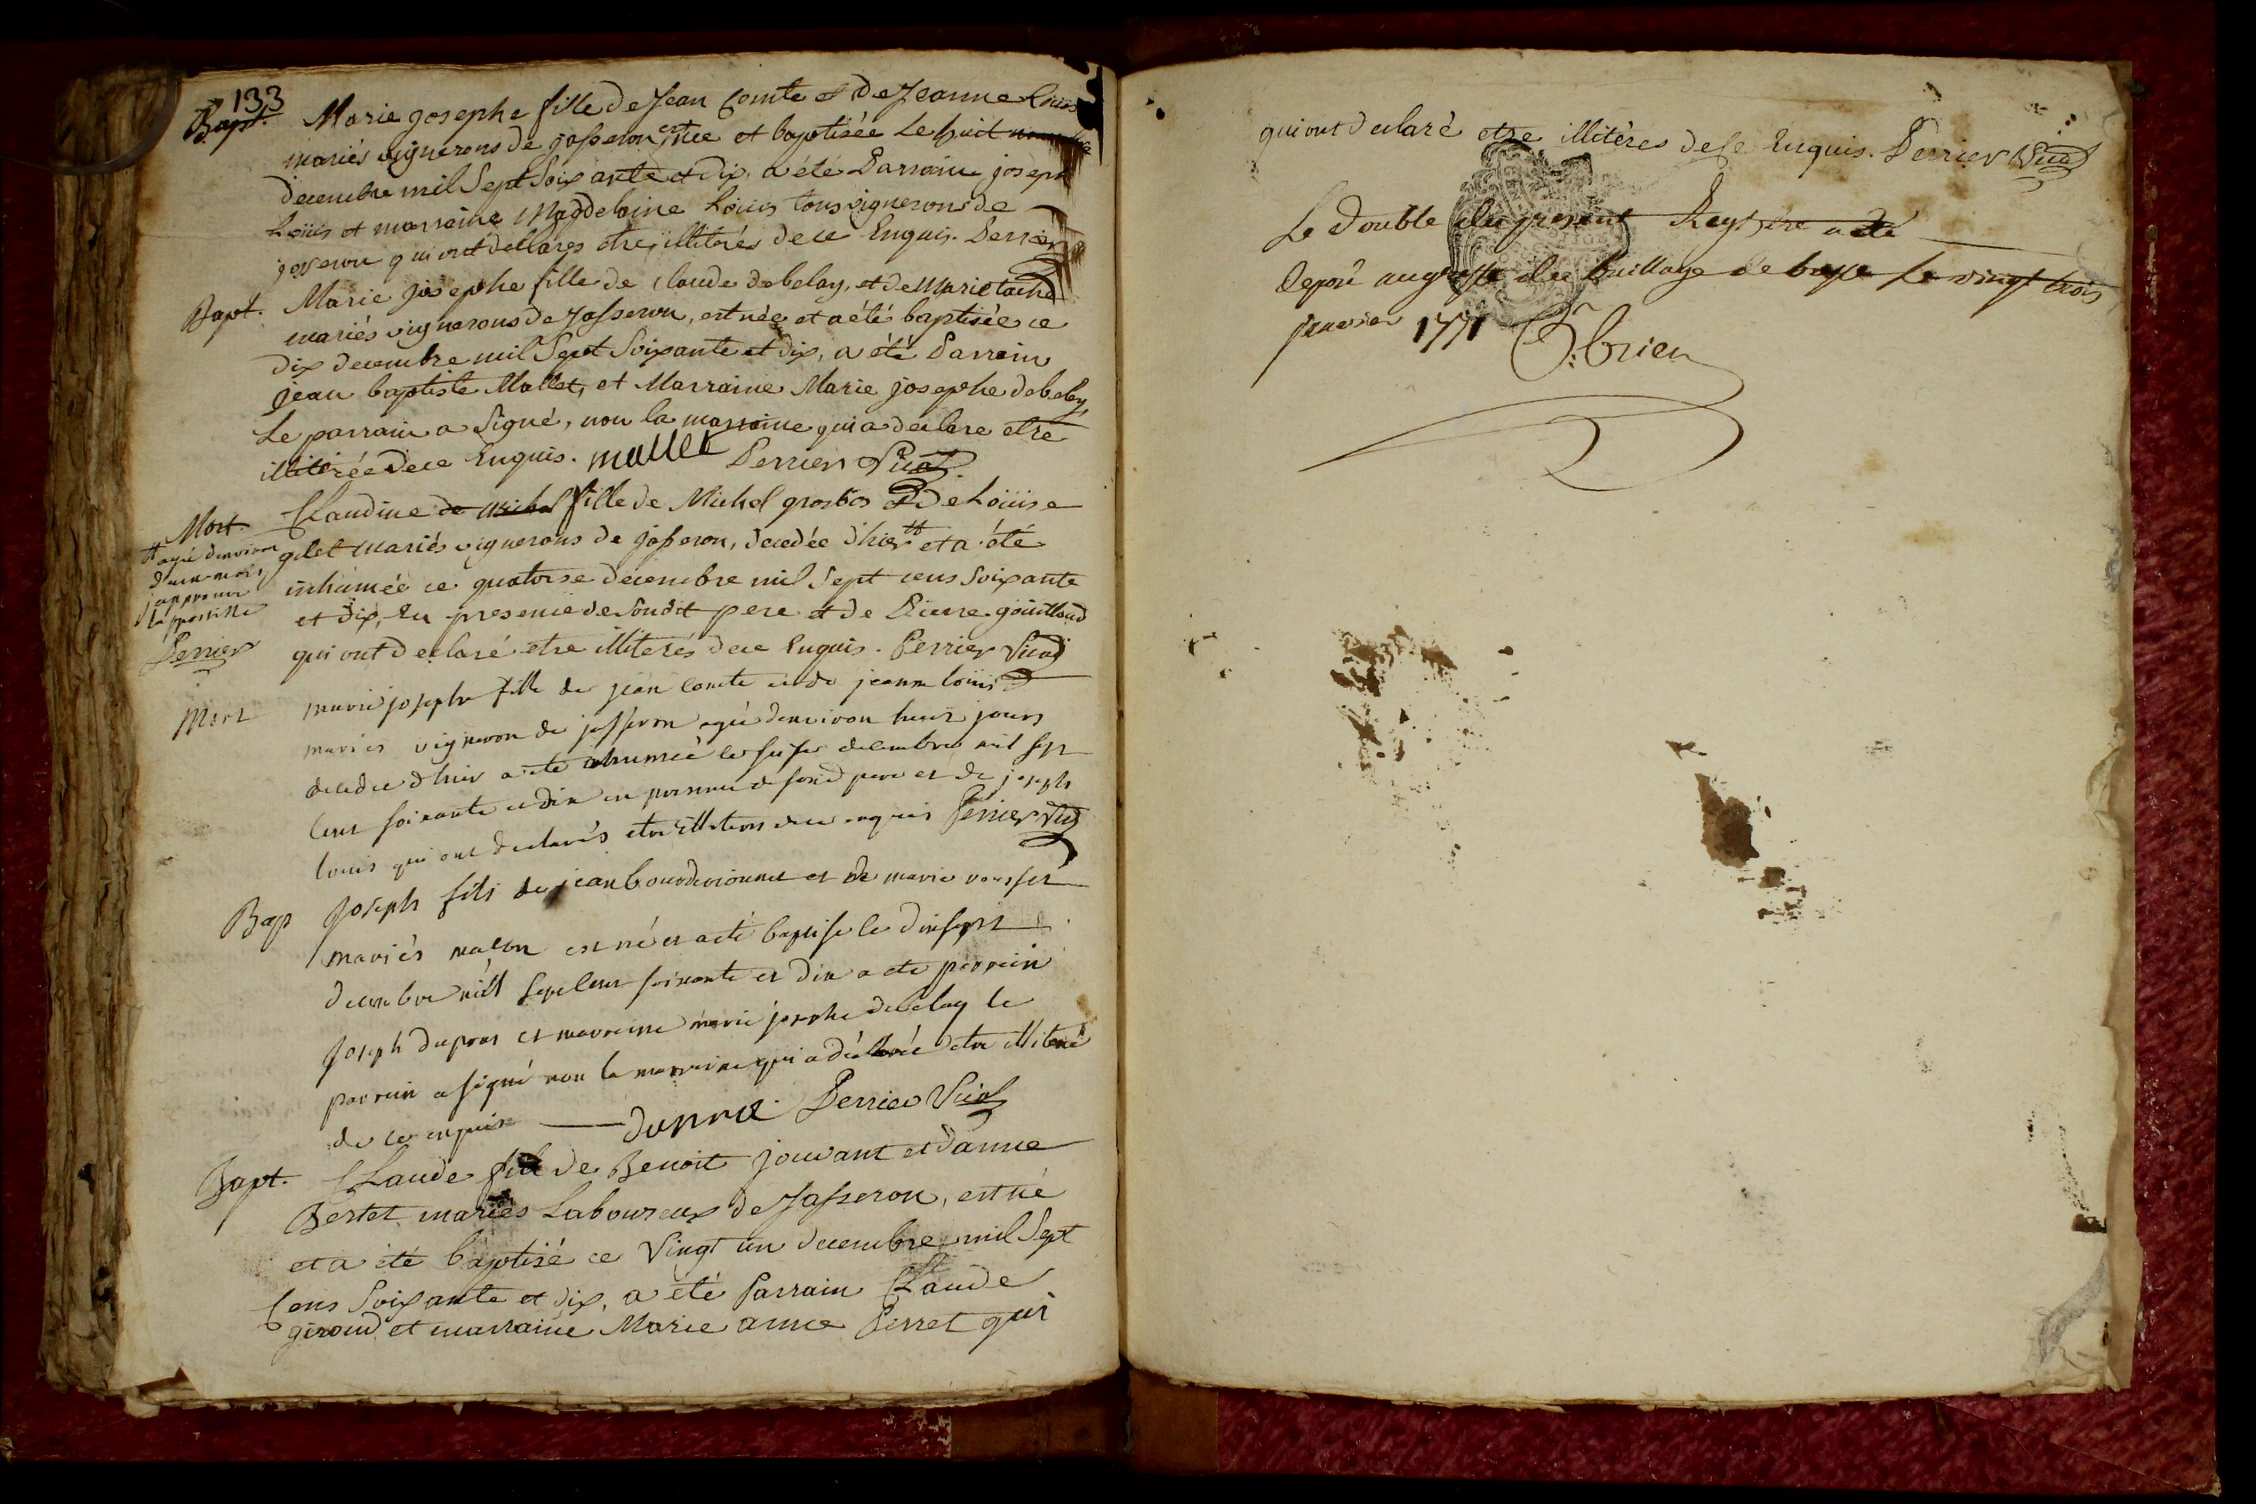 133
Bapt. Marie josephe fille de Jean Comte et de Jeanne Loüis
mariés vignerons de jasseron est née et baptisée Le huit
decembre mil Sept Soixante et Dix, a été Parrain joseph
Loüis et marraine Magdelaine Loüis tous vignerons de
jasseron qui ont declarés etre illiterés de ce Enquis. Perrier
Bapt. Marie josephe fille de claude debelay, et de Marie
mariés vignerons de Jasseron, est née et a été baptisée ce
dix decembre mil Sept Soixante et dix, a été Parrain
jean baptiste Mallet, et Marraine Marie josephe debelay,
Le parrain a Signé, non la marraine qui a declare etre
illiterée de ce Enquis. mallet Perrier Vic
Mort. Claudine de Michel fille de Michel grosbos et de Loüise
gilet mariés vignerons de jasseron, decedée d'hier # et a été
# agée denviron
d'un mois,
japprouve
la postille
Perrier
inhumée ce quatorse decembre mil Sept cens Soixante
et dix, En presence de Sondit pere et de Pierre goüilloud
qui ont declaré etre illiterés de ce Enquis. Perrier Vic
Mort marie josephe fille de jean comte et de jeanne loüis
mariés vigneron de jasseron agée denviron huit jours
decedée d'hier a eté inhumeé le seise decembre mil sept
cent soixante et dix en presence de sond pere et de joseph
louis qui ont declarés etre illiteres de ce enquis Perrier Vic
Bap Joseph fils de jean bourdeionnet et de marie
mariés maçon est né et a eté baptise le dix sept
decembre mill sept cent soixante et dix a ete parrein
Joseph et marreine marie josephe debelay le
parrein a signé non la marreine qui a déclaré etre illiteré
de ce enquise Perrier Vic
Bapt. Claude fils de Benoit jouvant et d'anne
Bertet mariés Laboureux de Jasseron, est né
et a été baptisé ce Vingt un decembre mil Sept
Cens Soixante et dix, a été Parrain Claude
giroud et marraine Marie anne Perret qui
qui ont declaré etre illitères de Ce Enquis. Perrier Vic
Le Double du present Registre a été
deposé au greffe du Bailliage de bresse le vingt trois
janvier 1771 brien